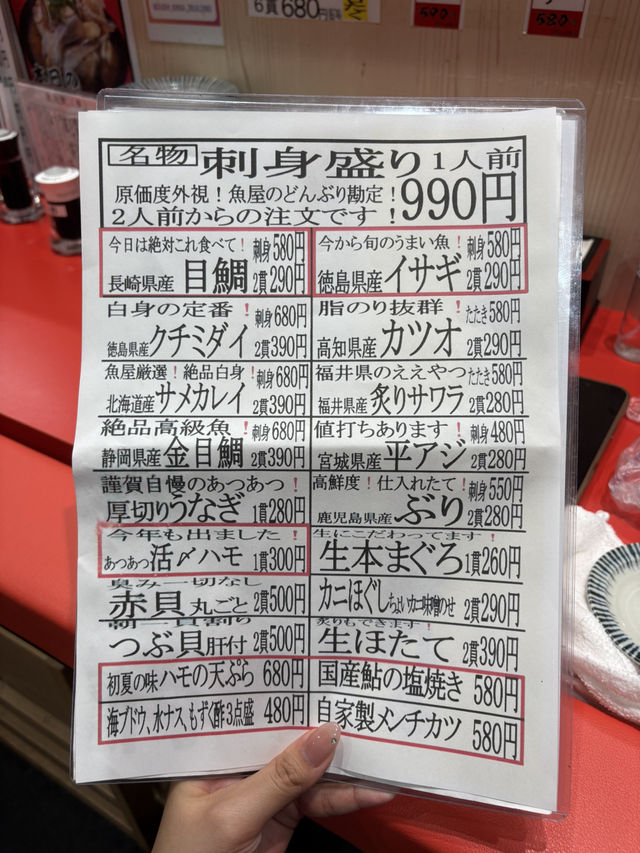 6貫680円
590円
580円
名物 刺身盛り1人前
原価度外視！魚屋のどんぶり勘定！
2人前からの注文です！990円
今日は絶対これ食べて！刺身580円
長崎県産 目鯛 2貫290円
今から旬のうまい魚！刺身580円
徳島県産 イサギ 2貫290円
白身の定番！刺身680円
徳島県産クチミダイ 2貫390円
脂のり抜群！たたき580円
高知県産 カツオ 2貫290円
魚屋厳選！絶品白身！刺身680円
北海道産 サメカレイ 2貫390円
福井県のええやつ たたき580円
福井県産 炙りサワラ 2貫280円
絶品高級魚！刺身680円
静岡県産 金目鯛 2貫390円
値打ちあります！刺身480円
宮城県産 平アジ 2貫280円
謹賀自慢のあつあつ！
厚切りうなぎ 1貫280円
高鮮度！仕入れたて！刺身550円
鹿児島県産 ぶり 2貫280円
今年も出ました！
あつあつ 活〆ハモ 1貫300円
生にこだわってます！
生本まぐろ 1貫260円
臭み一切なし
赤貝 丸ごと 2貫500円
カニほぐし ちょいカニ味噌のせ 2貫290円
朝一貝割り
つぶ貝肝付 2貫500円
炙りもできます！
生ほたて 2貫390円
初夏の味 ハモの天ぷら 680円
国産鮎の塩焼き 580円
海ブドウ、水ナス、もずく酢3点盛 480円
自家製メンチカツ 580円